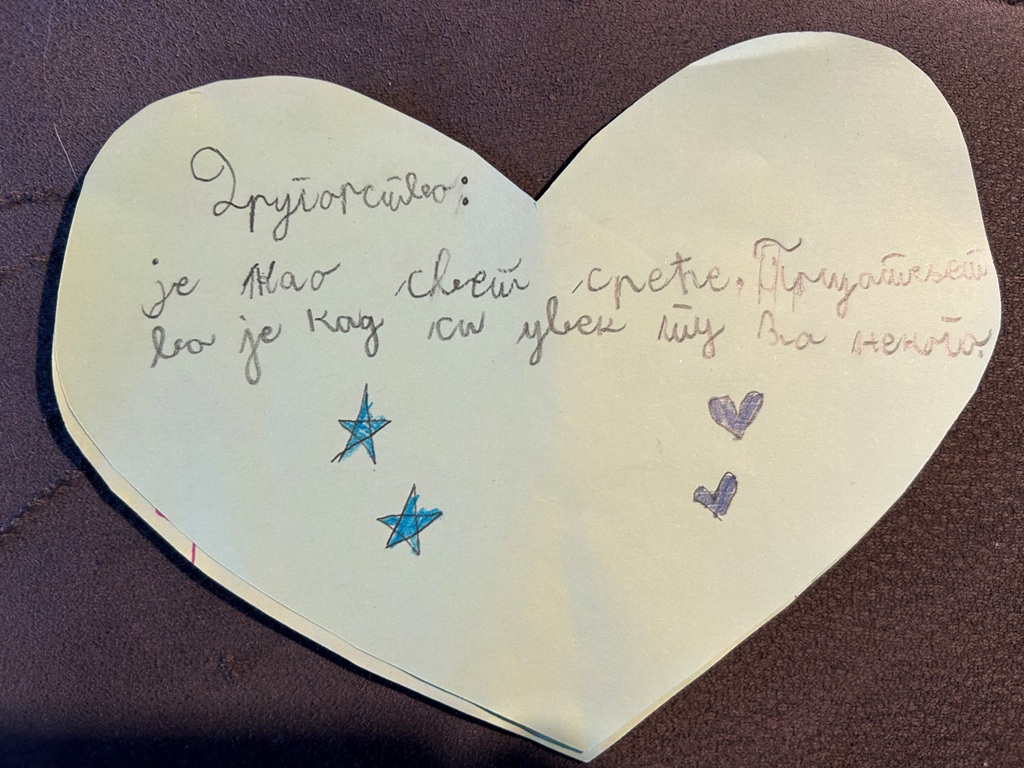 Другарство:
је као свет среће. Пријатељст
во је кад си увек ту за некога.